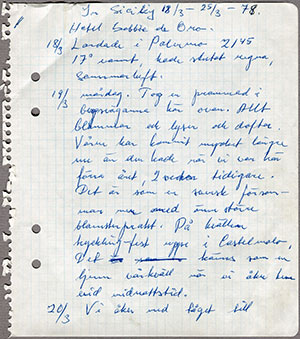 På Sicilien 18/3 – 25/3 – 78.
Hotel Sabbie de Oro.
18/3 Landade i Palermo 2145
17° varmt, hade slutat regna,
sommarluft.
19/3 måndag. Tog en promenad i
här ovan. Allt
blommar o lyser och doftar.
Våren har kommit mycket längre
nu än den hade när vi var här
förra året, 2 veckor tidigare.
Det är som en svensk försom-
mar men med ännu större
blomsterprakt. På kvällen
kyckling-fest uppe i Castelmola,
Det känns som en
ljum vårkväll när vi åker hem
vid midnattstid.
20/3 Vi åker med tåget till